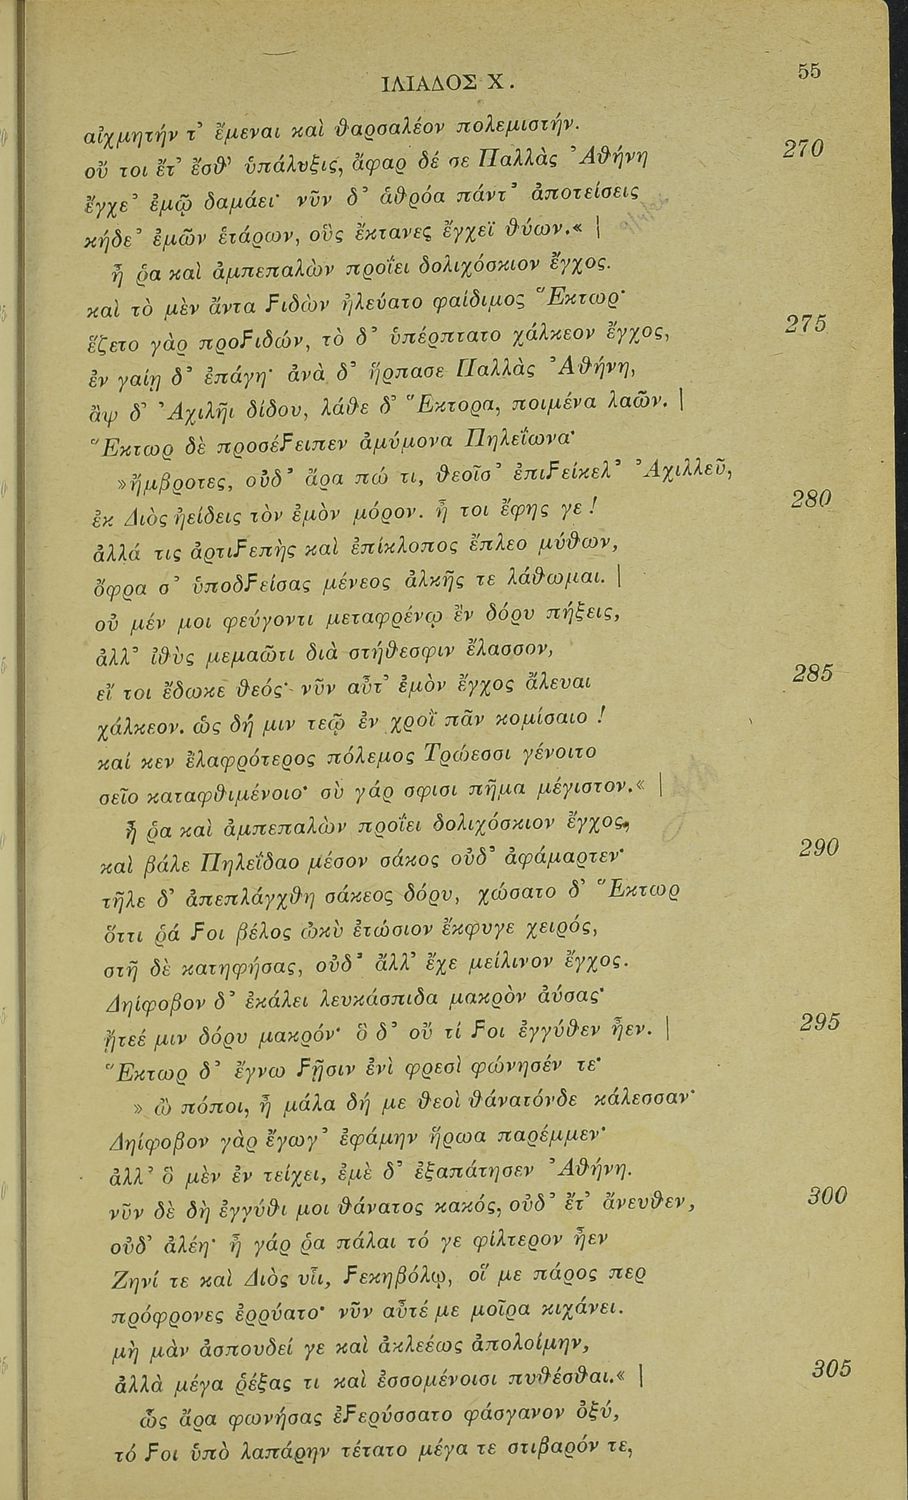 ΙΛΙΑΔΟΣ Χ.
55
αἰχμητήν τ’ ἔμεναι καὶ θαρσαλέον πολεμιστήν.
οὔ τοι ἔτ’ ἔσθ’ ὑπάλυξις, ἄφαρ δέ σε Παλλὰς Ἀθήνη 270
ἔγχε’ ἐμῷ δαμάει· νῦν δ’ ἁθρόα πάντ’ ἀποτείσεις
κήδε’ ἐμῶν ἑτάρων, οὓς ἔκτανες ἔγχεϊ θύων.« |
ἦ ῥα καὶ ἀμπεπαλὼν προΐει δολιχόσκιον ἔγχος.
καὶ τὸ μὲν ἄντα Ϝιδὼν ἠλεύατο φαίδιμος Ἕκτωρ·
ἕζετο γὰρ προϜιδών, τὸ δ’ ὑπέρπτατο χάλκεον ἔγχος, 275
ἐν γαίῃ δ’ ἐπάγη· ἀνὰ δ’ ἥρπασε Παλλὰς Ἀθήνη,
ἂψ δ’ Ἀχιλῆι δίδου, λάθε δ’ Ἕκτορα, ποιμένα λαῶν. |
Ἕκτωρ δὲ προσέϜειπεν ἀμύμονα Πηλεΐωνα·
»ἤμβροτες, οὐδ’ ἄρα πώ τι, θεοῖσ’ ἐπιϜείκελ’ Ἀχιλλεῦ,
ἐκ Διὸς ἠείδεις τὸν ἐμὸν μόρον. ἦ τοι ἔφης γε! 280
ἀλλά τις ἀρτιϜεπὴς καὶ ἐπίκλοπος ἔπλεο μύθων,
ὄφρα σ’ ὑποδϜείσας μένεος ἀλκῆς τε λάθωμαι. |
οὐ μέν μοι φεύγοντι μεταφρένῳ ἔν δόρυ πήξεις,
ἀλλ’ ἰθὺς μεμαῶτι διὰ στήθεσφιν ἔλασσον,
εἴ τοι ἔδωκε θεός· νῦν αὖτ’ ἐμὸν ἔγχος ἄλευαι 285
χάλκεον. ὡς δή μιν τεῷ ἐν χροῒ πᾶν κομίσαιο!
καί κεν ἐλαφρότερος πόλεμος Τρώεσσι γένοιτο
σεῖο καταφθιμένοιο· σὺ γάρ σφισι πῆμα μέγιστον.« |
ἦ ῥα καὶ ἀμπεπαλὼν προΐει δολιχόσκιον ἔγχος,
καὶ βάλε Πηλεΐδαο μέσον σάκος οὐδ’ ἀφάμαρτεν· 290
τῆλε δ’ ἀπεπλάγχθη σάκεος δόρυ, χώσατο δ’ Ἕκτωρ
ὅττι ῥά Ϝοι βέλος ὠκὺ ἐτώσιον ἔκφυγε χειρός,
στῆ δὲ κατηφήσας, οὐδ’ ἄλλ’ ἔχε μείλινον ἔγχος.
Δηίφοβον δ’ ἐκάλει λευκάσπιδα μακρὸν ἀύσας·
ᾔτεέ μιν δόρυ μακρόν· ὃ δ’ οὔ τί Ϝοι ἐγγύθεν ἦεν. | 295
Ἕκτωρ δ’ ἔγνω Ϝῇσιν ἐνὶ φρεσὶ φώνησέν τε·
» ὢ πόποι, ἦ μάλα δή με θεοὶ θάνατόνδε κάλεσσαν·
Δηίφοβον γὰρ ἔγωγ’ ἐφάμην ἥρωα παρέμμεν·
ἀλλ’ ὃ μὲν ἐν τείχει, ἐμὲ δ’ ἐξαπάτησεν Ἀθήνη.
νῦν δὲ δὴ ἐγγύθι μοι θάνατος κακός, οὐδ’ ἔτ’ ἄνευθεν, 300
οὐδ’ ἀλέη· ἦ γάρ ῥα πάλαι τό γε φίλτερον ἦεν
Ζηνί τε καὶ Διὸς υἷι, Ϝεκηβόλῳ, οἵ με πάρος περ
πρόφρονες ἐρρύατο· νῦν αὖτέ με μοῖρα κιχάνει.
μὴ μὰν ἀσπουδεί γε καὶ ἀκλεέως ἀπολοίμην,
ἀλλὰ μέγα ῥέξας τι καὶ ἐσσομένοισι πυθέσθαι.« | 305
ὣς ἄρα φωνήσας ἐϜερύσσατο φάσγανον ὀξύ,
τό Ϝοι ὑπὸ λαπάρην τέτατο μέγα τε στιβαρόν τε,